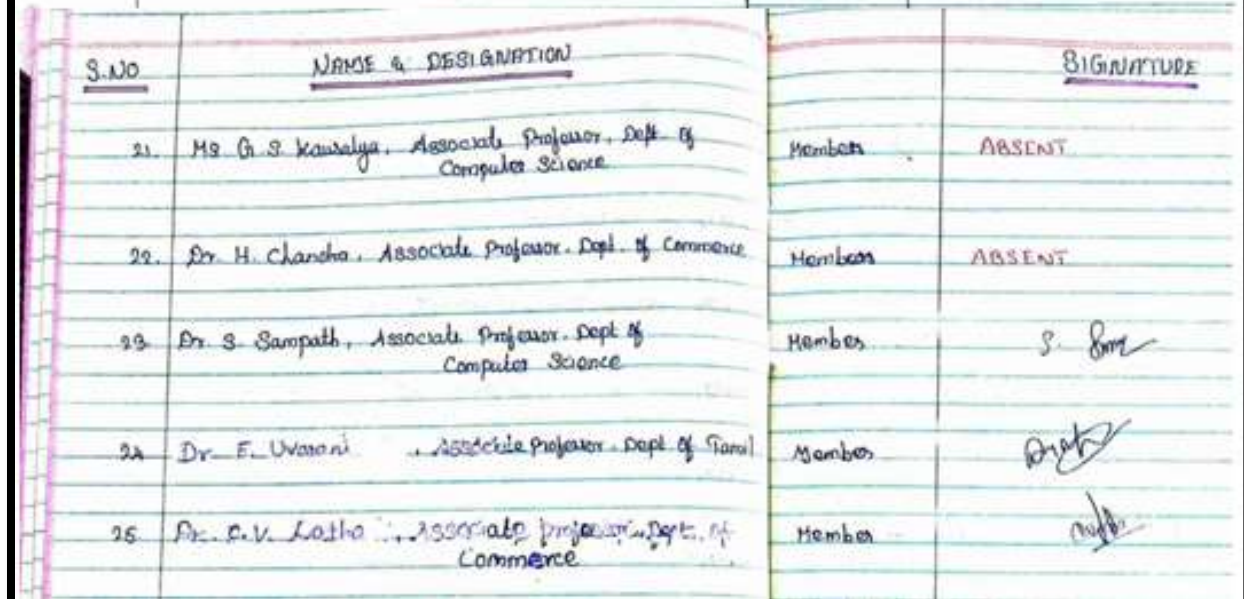 S.NO NAME & DESIGNATION SIGNATURE
21. Ms G. S. Kausalya, Associate Professor, Dept. of Member ABSENT
Computer Science
22. Dr. H. Chandra, Associate Professor, Dept. of Commerce Member ABSENT
23. Dr. S. Sampath, Associate Professor, Dept of Member S.
Computer Science
24 Dr. E. Uvarani, Associate Professor, Dept of Tamil Member
25 Dr. C.V. Latha, Associate Professor, Dept. of Member
Commerce